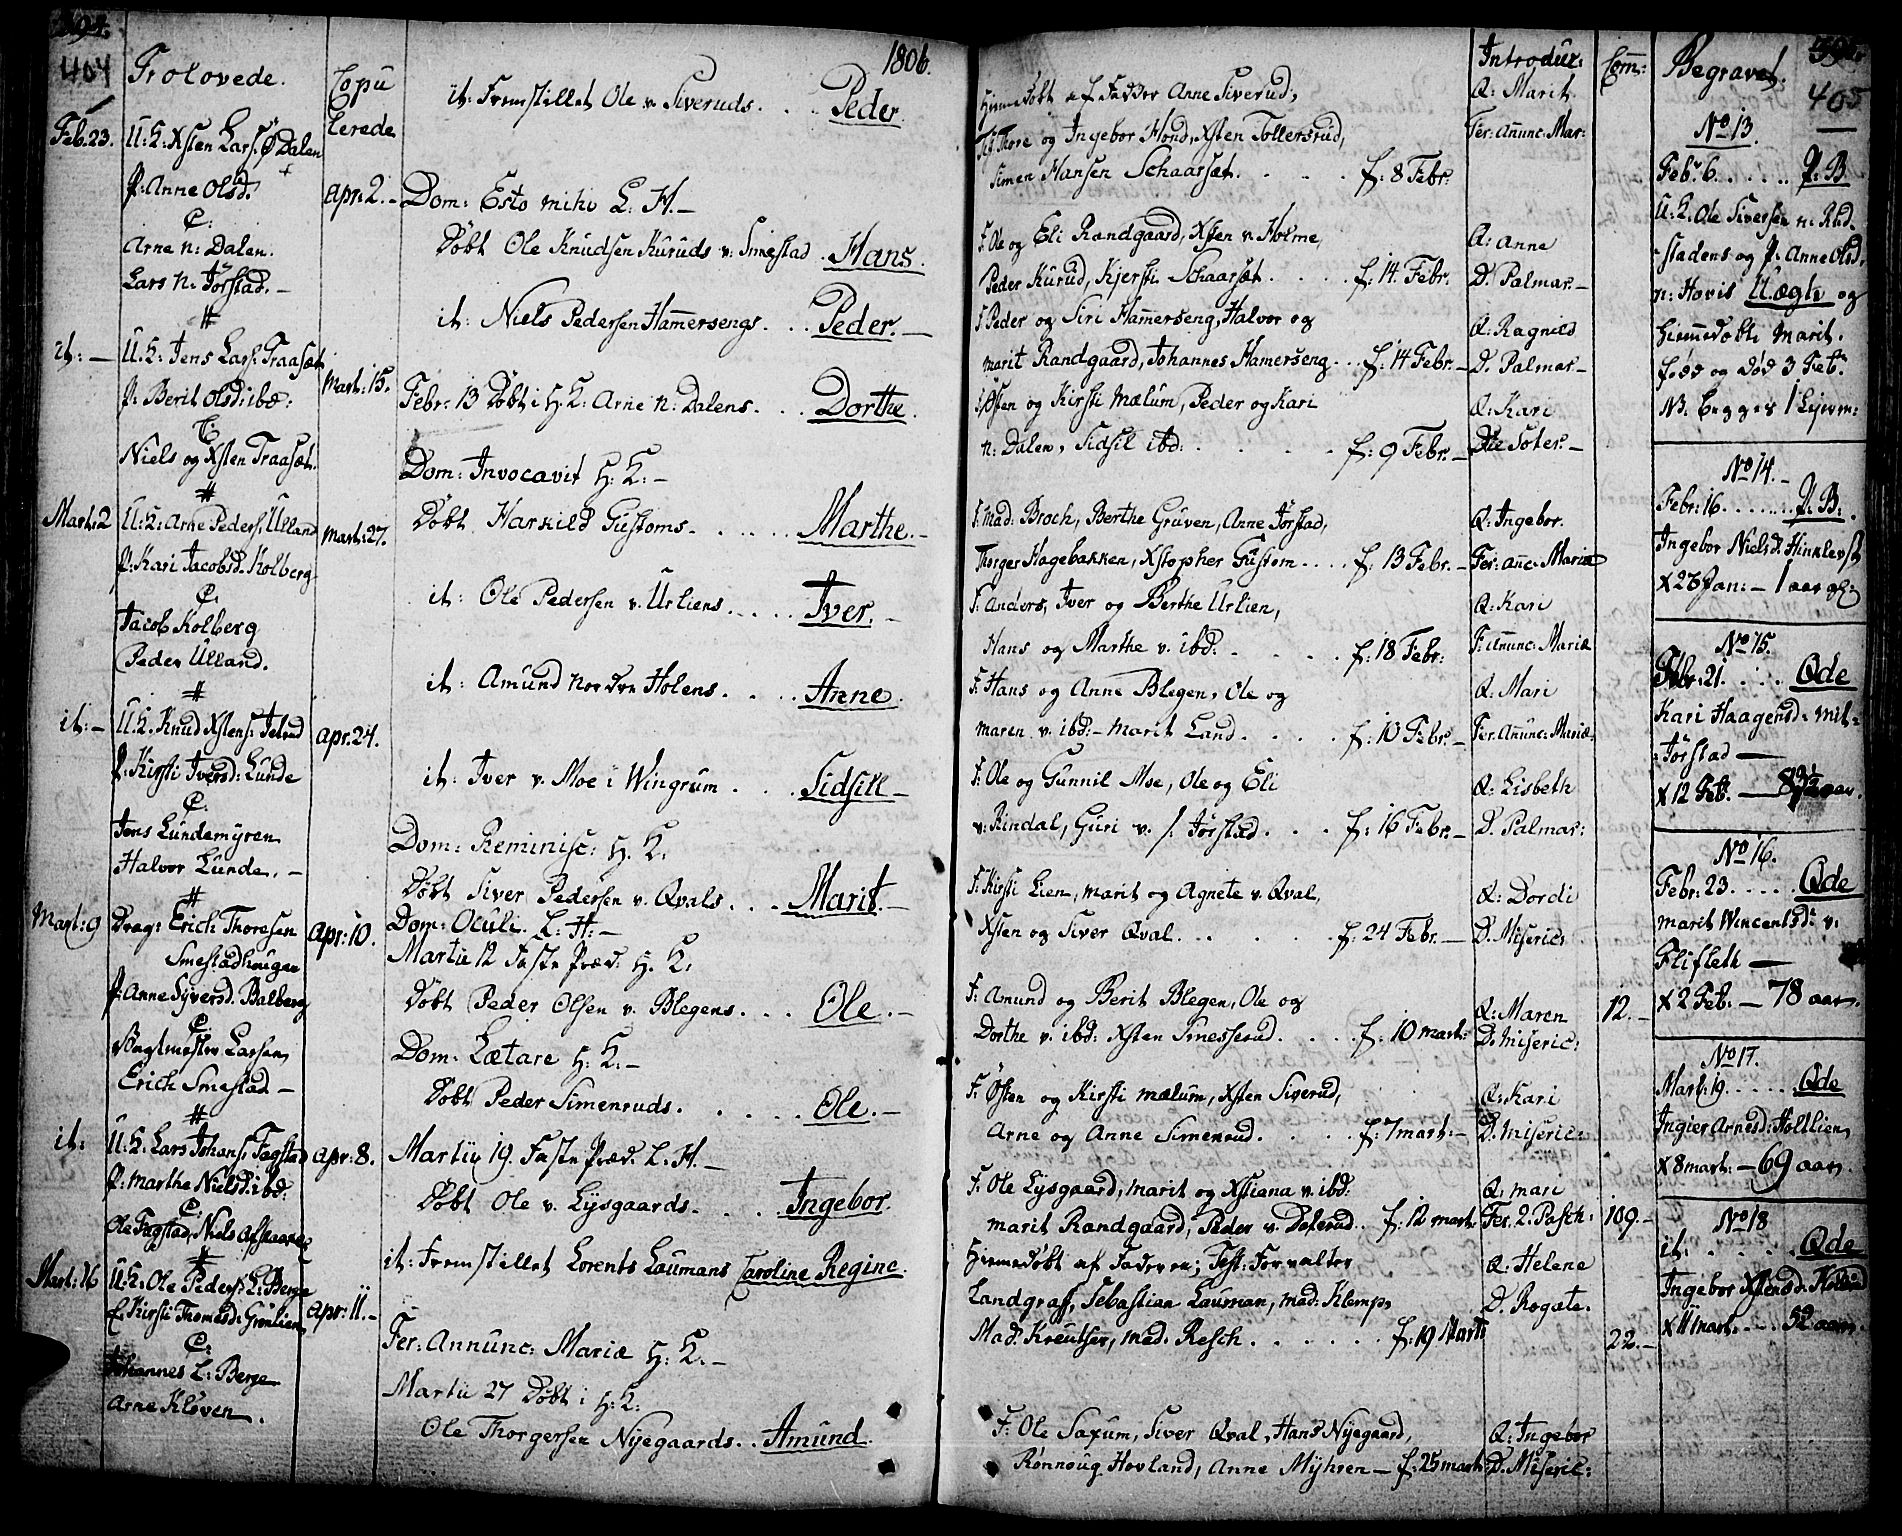 404
Trolovede.
Copu
lerede
1806.
Feb. 23.
U: K: Xsten Lars: Ø Dalen
P: Anne Olsd.
C:
Arne n: Dalen.
Lars n: Jørstad. –
Apr: 2. –
it: –
U: K: Jens Lars: Traaset
P: Berit Olsd: ibd:
C:
Niels og Xsten Traaset.
Mart: 15.
Mart: 2
U: K: Arne Peders: Ulland
P: Kari Jacobsd. Kolberg
C:
Jacob Kolberg
Peder Ulland.
Mart: 27.
it: –
U. K. Knud Xstens: Jetrud
P: Kirsti Iversd: Lunde
C:
Jens Lundemyren
Halvor Lunde. –
Apr: 24.
Mart: 9
Drag: Erich Thoresen
Smestadhaugen
P: Anne Syversd. Balberg
C:
Vagtmester Larsen,
Erich Smestad –
Apr: 10.
it:
U: K: Lars Johans: Fagstad
P: Marthe Nielsd: ibd:
C:
Ole Fagstad, Niels
Apr: 8.
Mart: 16
U: K: Ole Peders: L: Berge
E. Kirsti Thomesd: Grønlien
C:
Johannes L: Berge
Arne Kløven.
Apr: 11. –
it: Fremstillet Ole v. Siveruds. . . Peder.
Dom: Esto mihi L: H. –
Døbt Ole Knudsen Kuruds v: Smestad . Hans.
it: Niels Pedersen Hamersengs. . . Peder. –
Febr: 13 Døbt i H: K: Arne n: Dalens. . . Dorthe.
Dom: Invocavit H: K: –
Døbt Harkild Gustoms. . . . . Marthe. –
it: Ole Pedersen v. Urliens. . . . . Iver. –
it: Amund Nordre Holens. . . . Anne.
it: Iver v. Moe i Wingrum . . . Sidsill –
Dom: Reminisc: H. K:
Døbt Siver Pedersen v. Qvals. . . Marit. –
Dom: Oculi. L: H: –
Martii 12 Faste Præd: H. K:
Døbt Peder Olsen v. Blegens. . . . Ole. –
Dom: Lætare H: K: –
Døbt Peder Simenruds. . . . . Ole. –
Martii 19. Faste Præd: L. H. –
Døbt Ole v. Lysgaards. . . . . Ingebor.
it: Fremstillet Lorents Laumans Caroline Regine.
Fer: Annunc: Mariæ H: K: –
Martii 27 Døbt i H: K:
Ole Thorgersen Nyegaards. . Amund.
Hiemedøbt af Anne Siverud;
Thore og Ingebor Xsten Tollersrud,
Simen Hansen Schaarset. . . . . f: 8 Febr:
F: Ole og Eli Randgaard, Xsten v. Holme,
Peder Kurud, Kjersti Schaarset . . . . f: 14 Febr:
F: Peder og Siri Hamerseng, Halvor og
Marit Randgaard, Johannes Hamerseng . . f: 14 Febr. –
F: Østen og Kirsti Mælum, Peder og Kari
n: Dalen, Sidsil ibd: . . . . . f: 9 Febr. –
F: Mad: Broch, Berthe Gruven, Anne Jørstad,
Thorger Hagebakken, Xstopher Gustom . . . . f: 13 Febr. –
F: Anders, Iver og Berthe Urlien,
Hans og Marthe v. ibd: . . . . f: 18 Febr:
F: Hans og Anne Blegen, Ole og
Maren v. ibd: – Marit Land . . . . f: 10 Febr. –
F: Ole og Gunnil Moe, Ole og Eli
v: Rindal, Guri v. s. Jørstad . . . f: 16 Febr. –
F: Kirsti Lien, Marit og Agnete v. Qval,
Xsten og Siver Qval . . . . . . f: 24 Febr. –
F: Amund og Berit Blegen, Ole og
Dorthe v. ibd: Xsten Smesserud . . . . f: 10 Mart:
F: Østen og Kirsti Mælum, Xsten Siverud,
Arne og Anne Simenrud . . . . . f: 7 Mart: –
F: Ole Lysgaard, Marit og Xstiana v. ibd:
Marit Randgaard, Peder v. Dalerud . . f: 12 Mart.
Hiemedøbt af Faderen; Test: Forvalter
Landgraff, Sebastian Lauman, Mad: Klemp,
Mad: Kreutser, Mad. Resch . . . . . . f: 19 Marti
F: Ole Saxum, Siver Qval, Hans Nyegaard,
Rønnoug Hovland, Anne Myhren – f: 25 Mart:
Introduc:
Q: Marit
Fer: Anunc: Mar:
Q: Anne
D. Palmar. –
Q: Ragnild
D. Palmar –
Q: Kari
Soter. –
Q: Ingebor.
Fer: Anc: Mariæ
Q: Kari
F: Anunc: Mariæ
Q: Mari
Fer: Anunc: Mariæ:
Q: Lisbeth
D. Palmar:
Q: Dordi
D. Miseric:
Q: Maren
D. Miseric:
Q: Kari
D. Miseric:
Q: Mari
Fer: 2. Pasch:
Q: Helene
D. Rogate.
Q: Ingebor
D: Miseric:
Com:
12. –
109. –
22. –
Begravet.
405
No 13.
Feb: 6. . . . . P: B
U: K: Ole Siversen n: Rud-
-stadens og P: Anne Olsd.
n: Hovis Uægte og
Hiemedøbte Marit.
fød og død 3 Feb:
NB. begges 1 Leierm:
No 14. –
Febr: 16. . . . . . P: B:
Ingebor Nielsd. Hinklevs
X 26 Jan: – 1 aar gl:
No 15.
Febr: 21. . . . . Qde
Kari Haagensd: Mit-
-Jørstad –
X 12 Feb. –
No 16.
Febr: 23. . . . . Qde
Marit Wincentsd: v:
Flifleth –
X 2 Feb. – 78 aar.
No 17.
Mart: 19. . . . . Qde
Ingier Arnesd: Holtlien,
X 8 Mart: – 69 aar.
No 18
it: . . . . . Qde
Ingebor Xstensd.
X 11 Mart. . . . 52 aar.